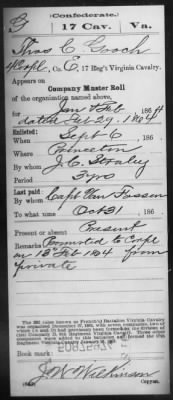 G (Confederate.)
17 Cav. Va.
Thos C Gooch
4 Corpl, Co. E, 17 Reg't Virginia Cavalry.
Appears on
Company Muster Roll
of the organization named above,
for Jan & Feb, 1864
dated Feb 29, 1864
Enlisted:
When Sept 6, 186
Where Princeton
By whom J. C. Straley
Period 3 yrs
Last paid:
By whom Capt Van Fossen
To what time Oct 31, 186
Present or absent Present
Remarks: Promoted to Corpl
on 13 Feb 1864 from
private
Book mark:
J W Wilkinson
Copyist.